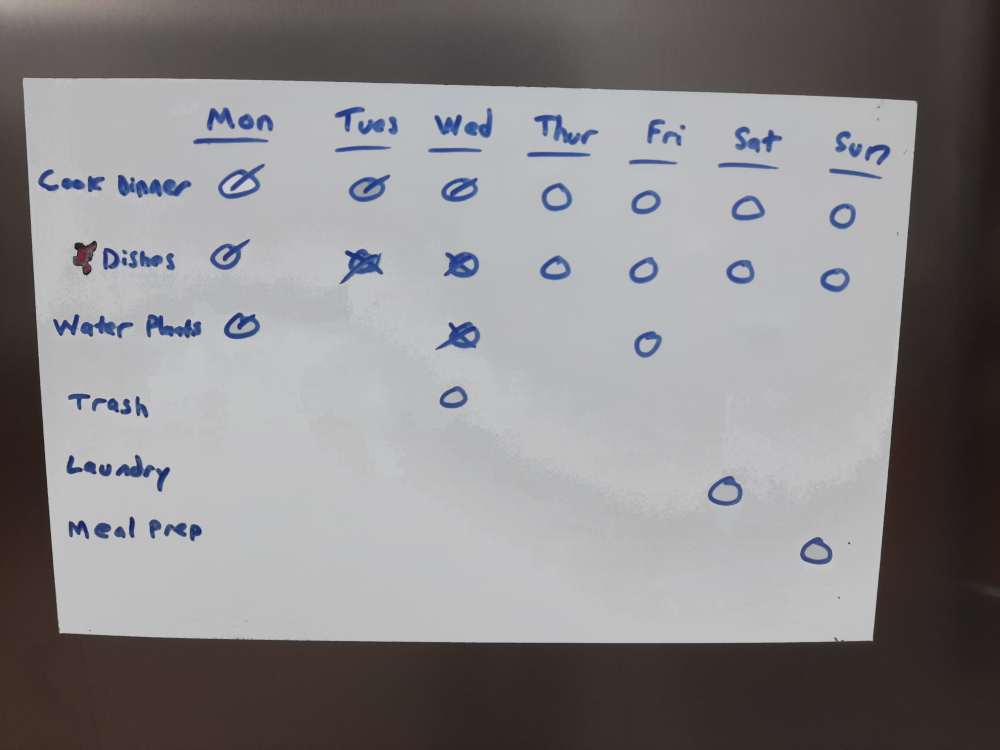 Mon Tues Wed Thur Fri Sat Sun
Cook Dinner
Dishes
Water Plants
Trash
Laundry
Meal Prep